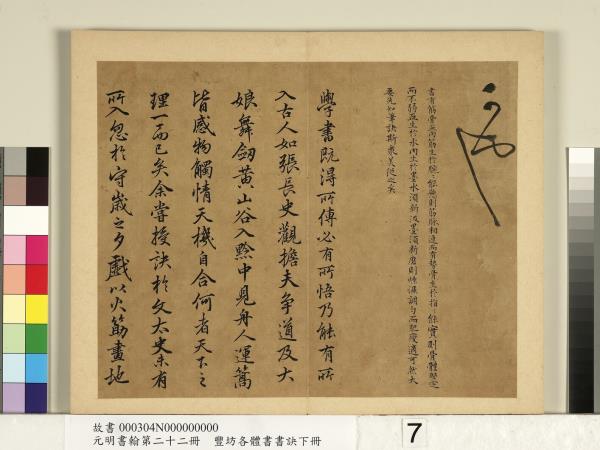 書有筋骨血肉筋生於腕腕能懸則筋脉相連而有勢骨生於指指能實則骨體堅定
而不弱血生於水肉生於墨水須新汲墨須新磨則燥濕調匀而肥瘦適可然大
要先知筆訣斯衆美從之矣
學書既得所傳必有所悟乃能有所
入古人如張長史觀擔夫爭道及大
娘舞劒黄山谷入黔中見舟人運篙
皆感物觸情天機自合何者天下之
理一而已矣余嘗授訣於文太史未有
所入忽於守歲之夕戲以火筋畫地
故書 000304N000000000
元明書翰第二十二冊 豐坊各體書書訣下冊
7